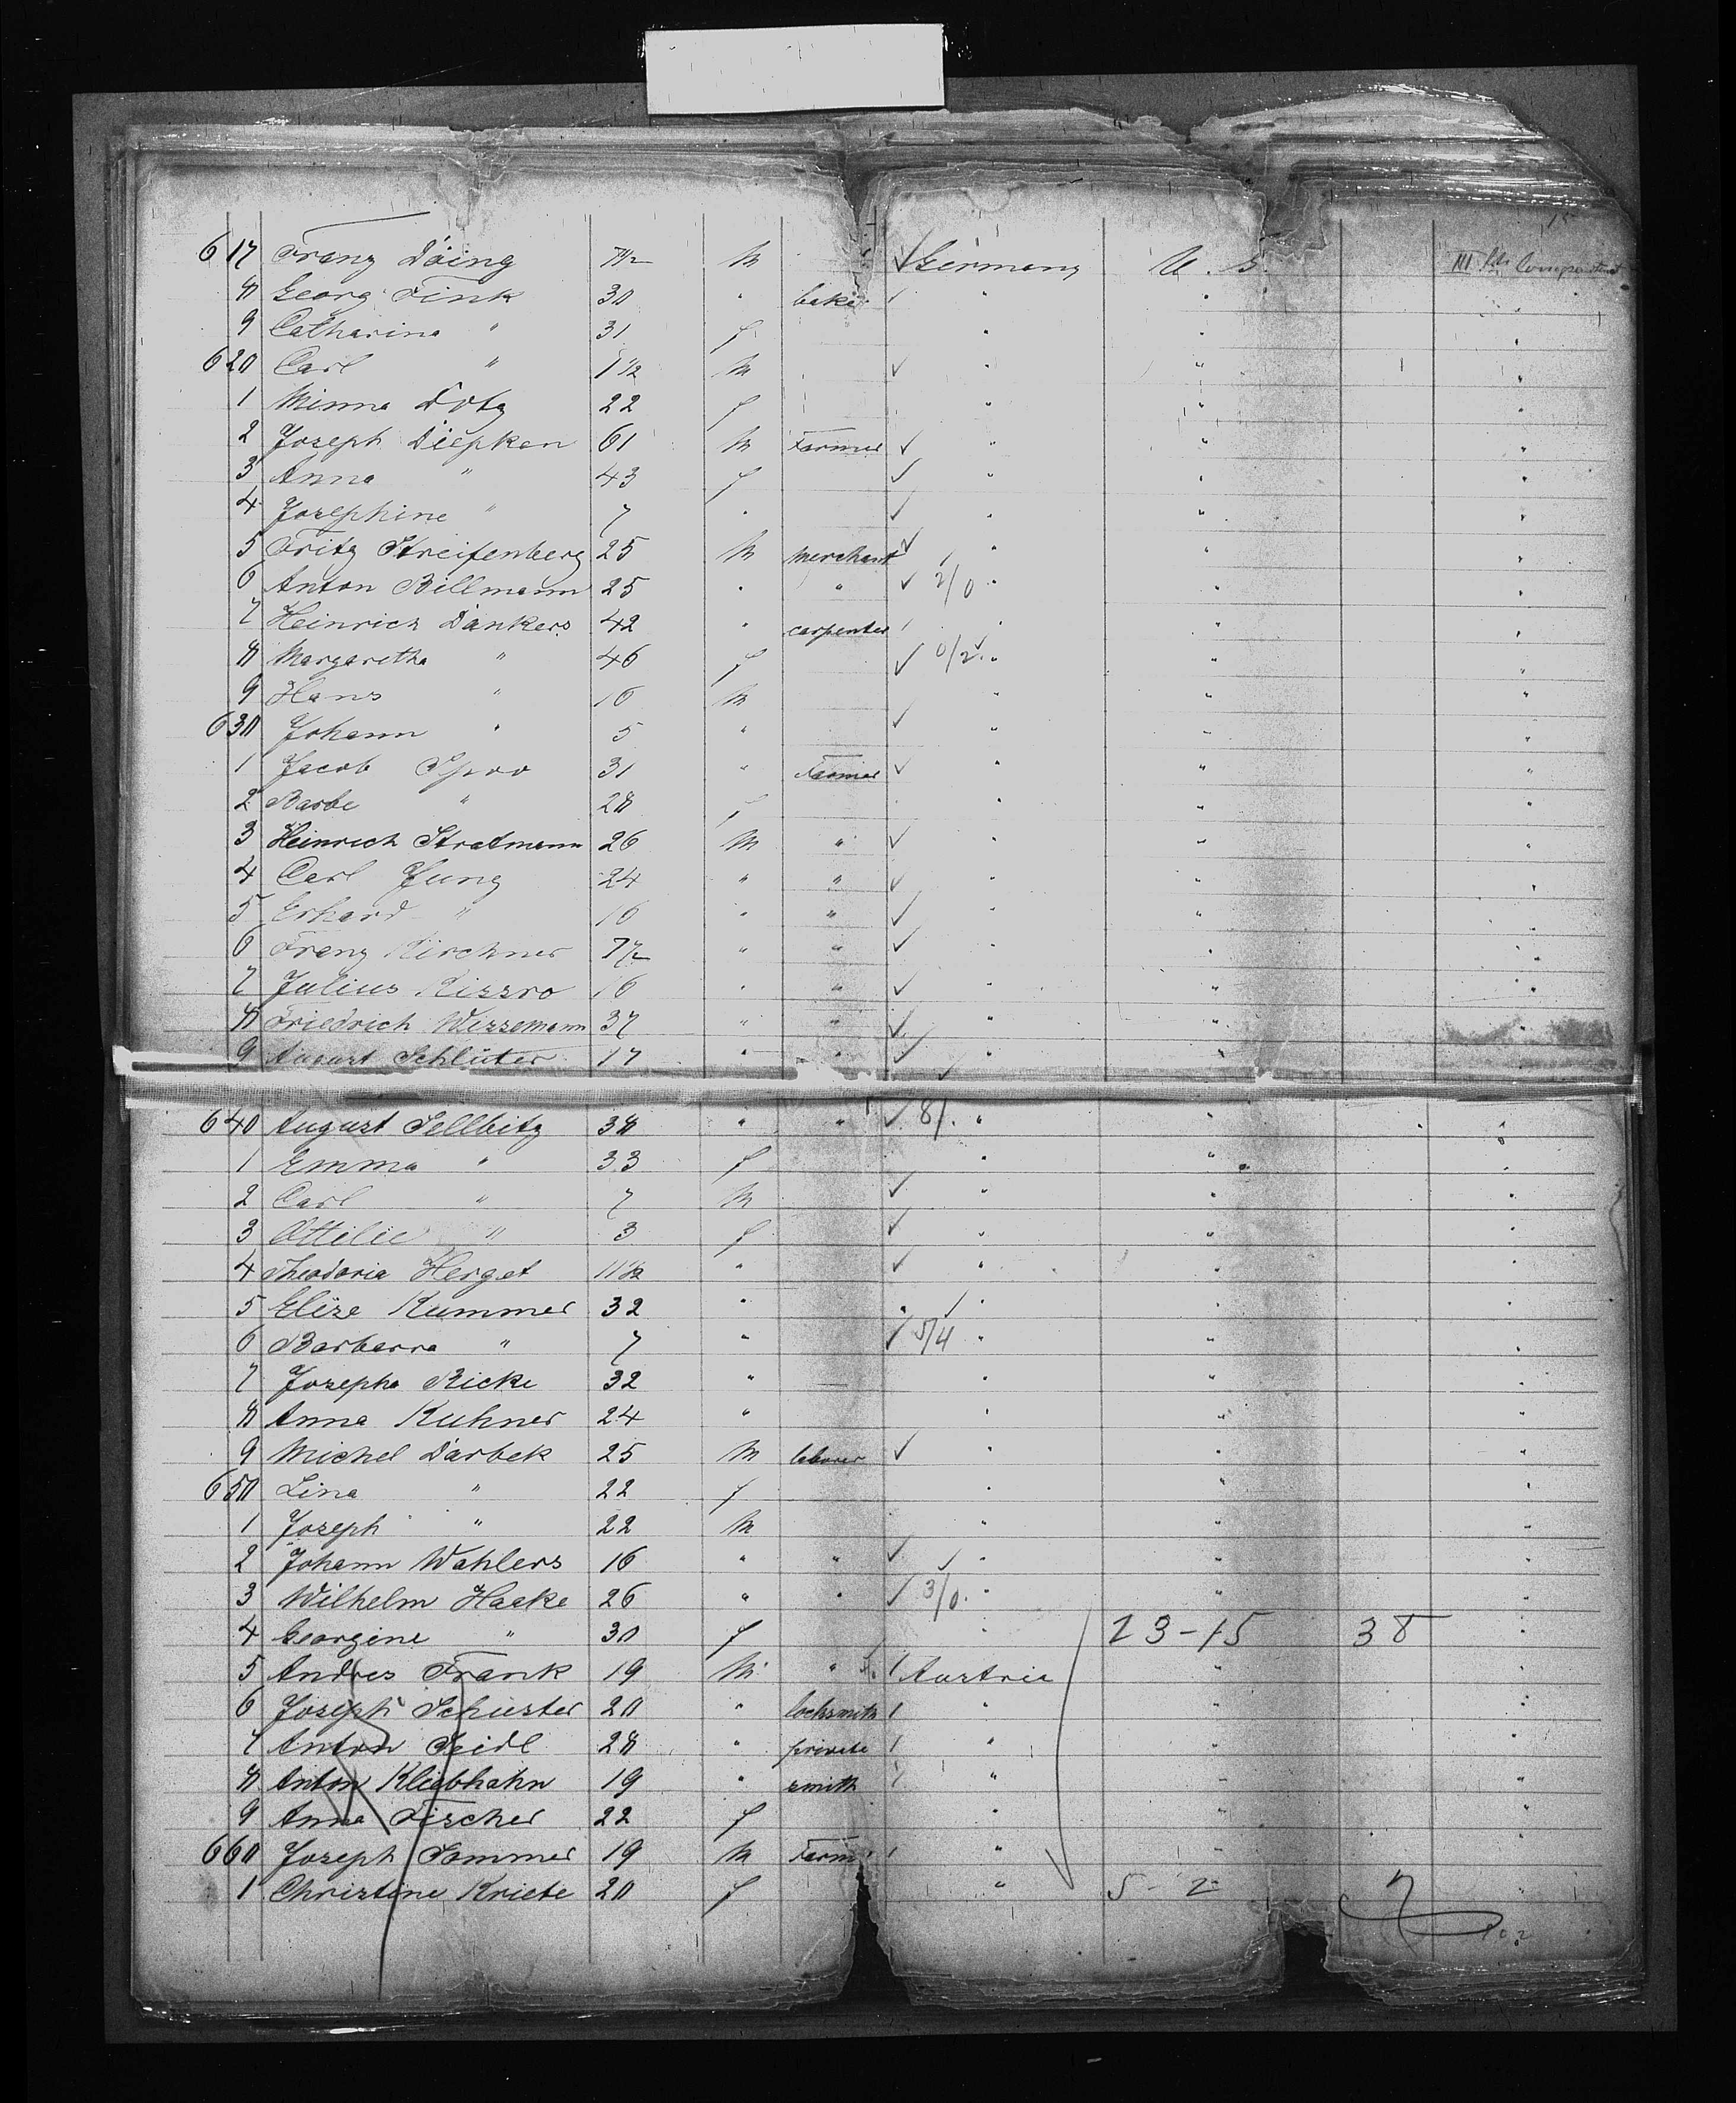 15
617 Franz Döing m Germany U. S. III
8 Georg Fink 30 " baker " " "
9 Catharina " 31 f " " "
620 Carl " 1 1/2 m " " "
1 Minna Dotz 22 f " " "
2 Joseph Diepken 61 m Farmer " " "
3 Anna " 43 f " " "
4 Josephine " 7 " " " "
5 Fritz Streifenberg 25 m merchant " " "
6 Anton Billmann 25 " " 2/0 " " "
7 Heinrich Dänkers 42 " carpenter " " "
8 Margaretha " 46 f 0/2 " " "
9 Hans " 16 m " " "
630 Johann " 5 " " " "
1 Jacob Spoo 31 " Farmer " " "
2 Barbe " 28 f " " "
3 Heinrich Stratmann 26 m " " " "
4 Carl Jung 24 " " " " "
5 Erhard " 16 " " " " "
6 Franz Kirchner " " " " "
7 Julius Kissro 16 " " " " "
8 Friedrich Wissemann 37 " " " " "
9 August Schlüter 17 " " " " "
640 August Sellbitz 38 " " 8/. " " "
1 Emma " 33 f " " "
2 Carl " 7 m " " "
3 Ottilie " 3 f " " "
4 Theodoria Herget 11 1/2 " " " "
5 Elise Kummer 32 " " " "
6 Barbarra " 7 " 5/4 " " "
7 Josepha Ricke 32 " " " "
8 Anna Kuhner 24 " " " "
9 Michel Darbek 25 m laborer " " "
650 Lina " 22 f " " "
1 Joseph " 22 m " " "
2 Johann Wahlers 16 " " " " "
3 Wilhelm Haake 26 " " 3/0 " " "
4 Georgine " 30 f " 23-15 38 "
5 Andres Frank 19 m " Austria " "
6 Joseph Schuster 20 " locksmith " " "
7 Anton Seidl 28 " private " " "
8 Anton Kliebhahn 19 " smith " " "
9 Anna Fischer 22 f " " "
660 Joseph Sommer 19 m Farm " " "
1 Christine Kriete 20 f " 5-2 7 "